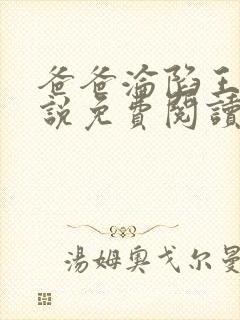 爸爸淪陷王
說免費閱讀
湯姆奧戈尔曼